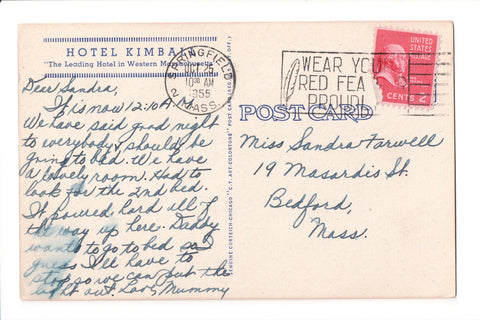 HOTEL KIMBA
"The Leading Hotel in Western Massachusetts"
SPRINGFIELD
OCT
10 AM
1955
2 MASS.
WEAR YOU
RED FEA
PROUD
UNITED STATES
POSTAGE
CENTS 2
POST CARD
GENUINE CURTEICH-CHICAGO "C.T. ART-COLORTONE" POST CARD
Dear Sandra,
It is now 12:10 A.M.
We have said good night
to everybody, should be
going to bed. We have
a lovely room. Had to
look for the 2nd bed.
It poured hard all of
the way up here. Daddy
wants to go to bed so I
guess I'll have to
stop so we can put the
light out. Love, Mummy
Miss Sandra Farwell
19 Masardis St.
Bedford,
Mass.